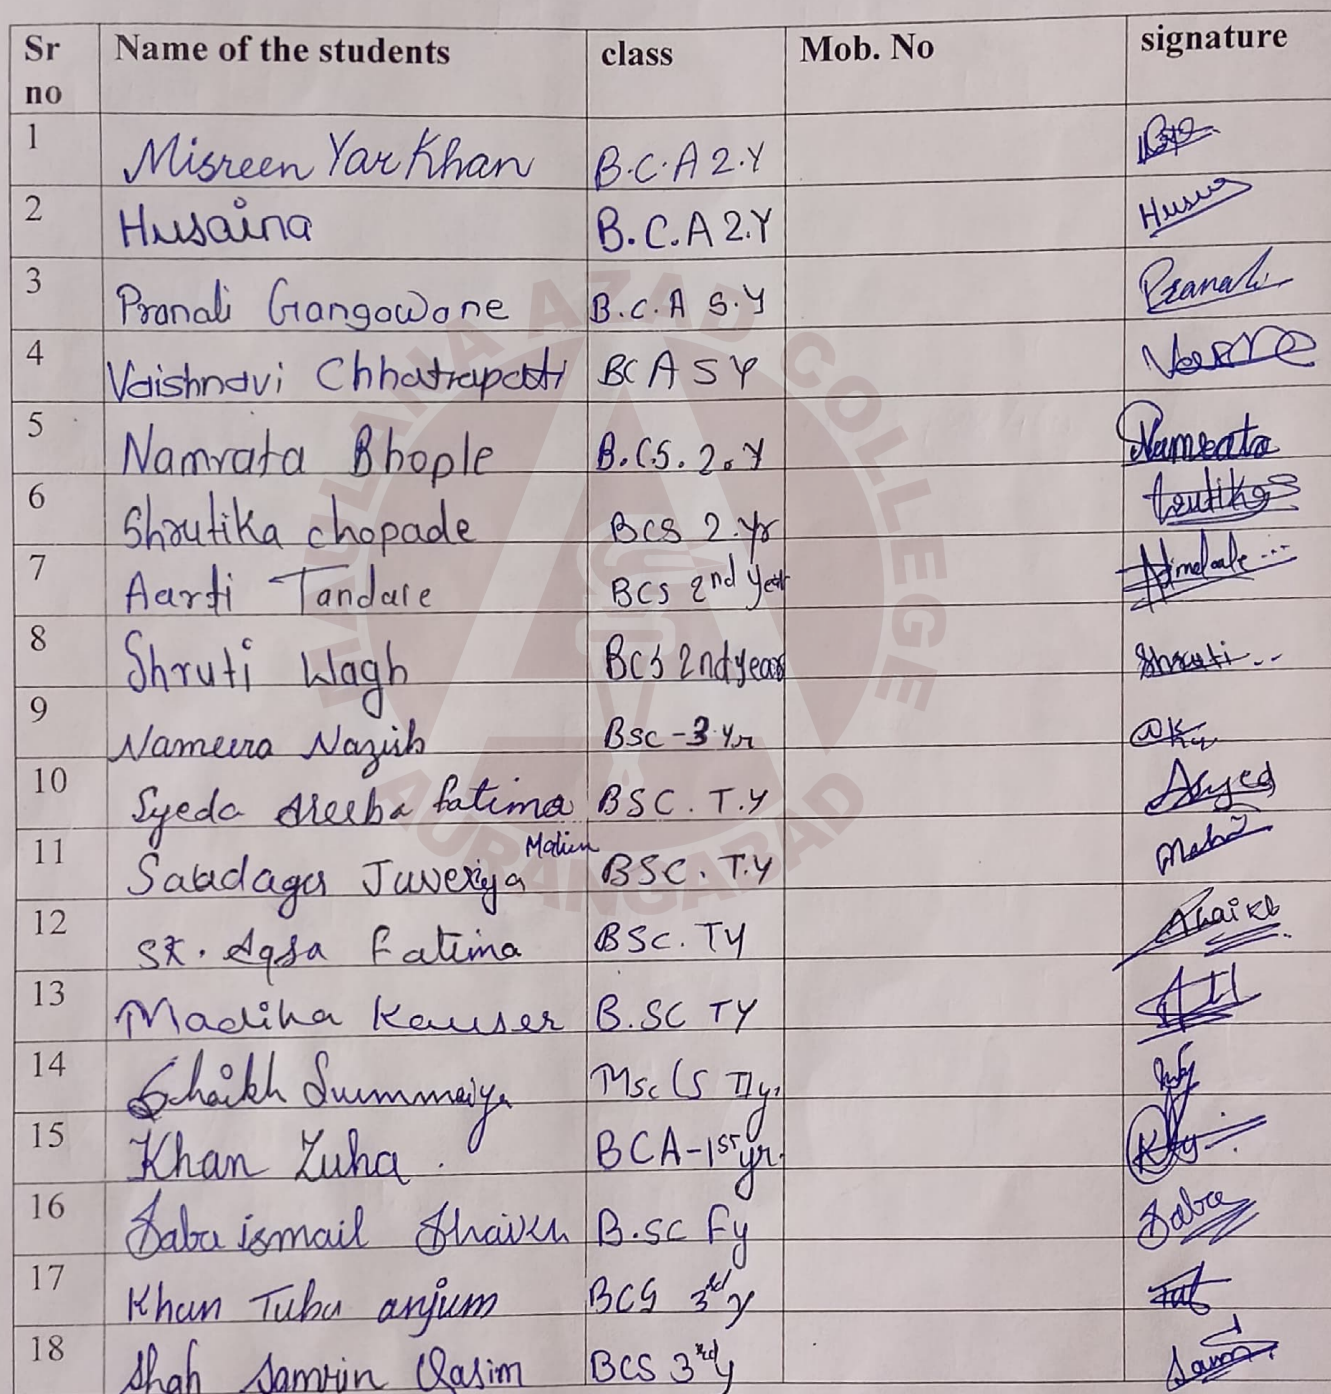 Sr no Name of the students class Mob. No signature
1 Misreen Yar Khan B.C.A 2.Y
2 Husaina B.C.A 2.Y Husaina
3 Pranali Gangawane B.C.A S.Y Pranali
4 Vaishnavi Chhatrapati BCA SY
5 Namrata Bhople B.CS. 2.Y Namrata
6 Shrutika chopade BCS 2.yr
7 Aarti Tandale BCS 2nd year
8 Shruti Wagh BCS 2nd year Shruti
9 Nameera Nazish BSC-3 yr
10 Syeda Areeba fatima BSC. T.Y Asyed
11 Saudagar Juveriya BSC. T.Y
12 SK. Aqsa Fatima BSC. TY Shaikh
13 Madiha Kauser B.SC TY
14 Shaikh Summaiya Msc CS II yr
15 Khan Zuha. BCA-1st yr.
16 Saba ismail Shaikh B.SC Fy Saba
17 Khan Tuba anjum BCS 3rd y
18 Shah Samrin Qasim BCS 3rd y
MAULANA AZAD COLLEGE
AURANGABAD